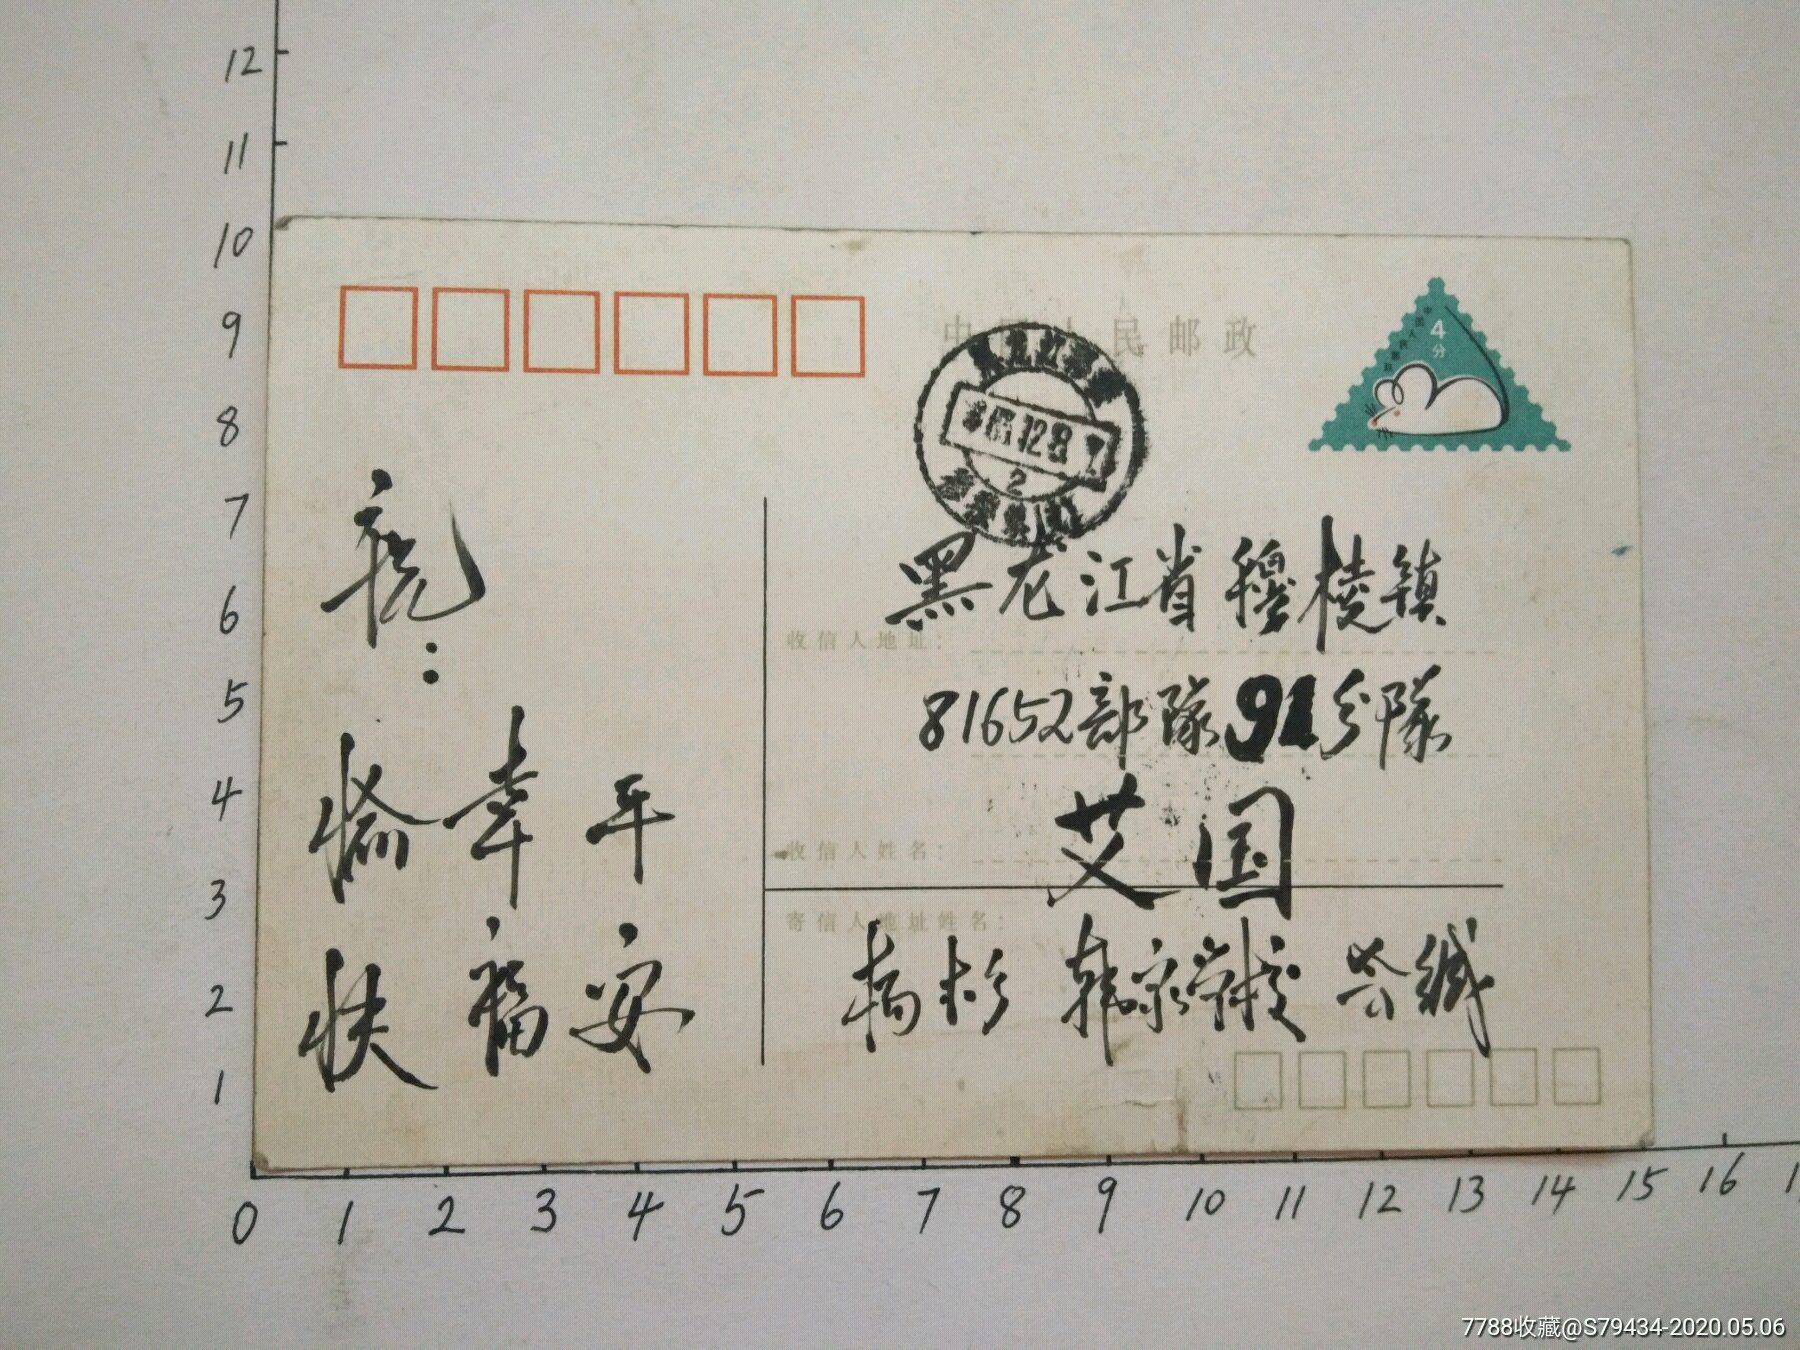 12
11
10
9
8
7
6
5
4
3
2
1
中国人民邮政
4
分
12
2
祝:
愉 幸 平
快 福 安
黑龙江省穆棱镇
收信人地址:
81652部隊91分隊
收信人姓名:
艾国
寄信人地址姓名:
杨杉 韩家学校 吕缄
0 1 2 3 4 5 6 7 8 9 10 11 12 13 14 15 16
7788收藏@S79434-2020.05.06